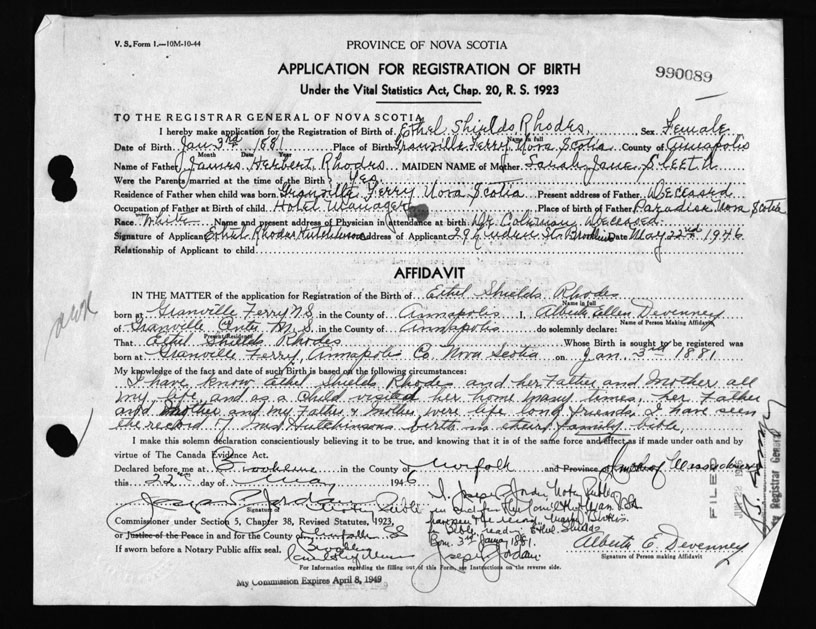 V. S. Form 1.—10M-10-44
PROVINCE OF NOVA SCOTIA
990089
APPLICATION FOR REGISTRATION OF BIRTH
Under the Vital Statistics Act, Chap. 20, R. S. 1923
TO THE REGISTRAR GENERAL OF NOVA SCOTIA
I hereby make application for the Registration of Birth of Ethel Shields Rhodes Sex Female
Name in full
Date of Birth Jan 3rd 1881 Place of Birth Granville Ferry Nova Scotia County of Annapolis
Month Date Year
Name of Father James Herbert Rhodes MAIDEN NAME of Mother Sarah Jane Sleeth
Were the Parents married at the time of the Birth? Yes
Residence of Father when child was born Granville Ferry Nova Scotia Present address of Father Deceased
Occupation of Father at Birth of child Hotel Manager Place of birth of Father Paradise Nova Scotia
Race White Name and present address of Physician in attendance at birth Dr. Coleman Deceased
Signature of Applicant Ethel Rhodes Hutchinson Address of Applicant 29 Linden St. Brookline Date May 22nd 1946
Relationship of Applicant to child
AFFIDAVIT
IN THE MATTER of the application for Registration of the Birth of Ethel Shields Rhodes
Name in full
born at Granville Ferry N.S. in the County of Annapolis I, Alberta Ellen Devenney
Name of Person Making Affidavit
of Granville Center N.S. in the County of Annapolis do solemnly declare:
Present Residence
That Ethel Shields Rhodes Whose Birth is sought to be registered was
born at Granville Ferry, Annapolis Co. Nova Scotia on Jan. 3rd 1881
My knowledge of the fact and date of such Birth is based on the following circumstances:
I have know Ethel Shields Rhodes and her Father and Mother all
my life, and as a child visited her home many times, her Father
and Mother and my Father & Mother were life long friends. I have seen
the record of Mrs Hutchinsons birth in their family bible.
I make this solemn declaration conscientiously believing it to be true, and knowing that it is of the same force and effect as if made under oath and by
virtue of The Canada Evidence Act.
Declared before me at Brookline in the County of Norfolk and Province of Massachusetts
this 22nd day of May 1946
Joseph Jordan Notary Public
Signature of
Commissioner under Section 5, Chapter 38, Revised Statutes, 1923,
or Justice of the Peace in and for the County of Norfolk
If sworn before a Notary Public affix seal.
I, Joseph Jordan Notary Public
in and for the
Bible
Born 3rd 1881.
Joseph Jordan
Alberta E. Devenney
Signature of Person making Affidavit
For Information regarding the filling out of this Form, see Instructions on the reverse side.
My Commission Expires April 8, 1949
FILED
Registrar General